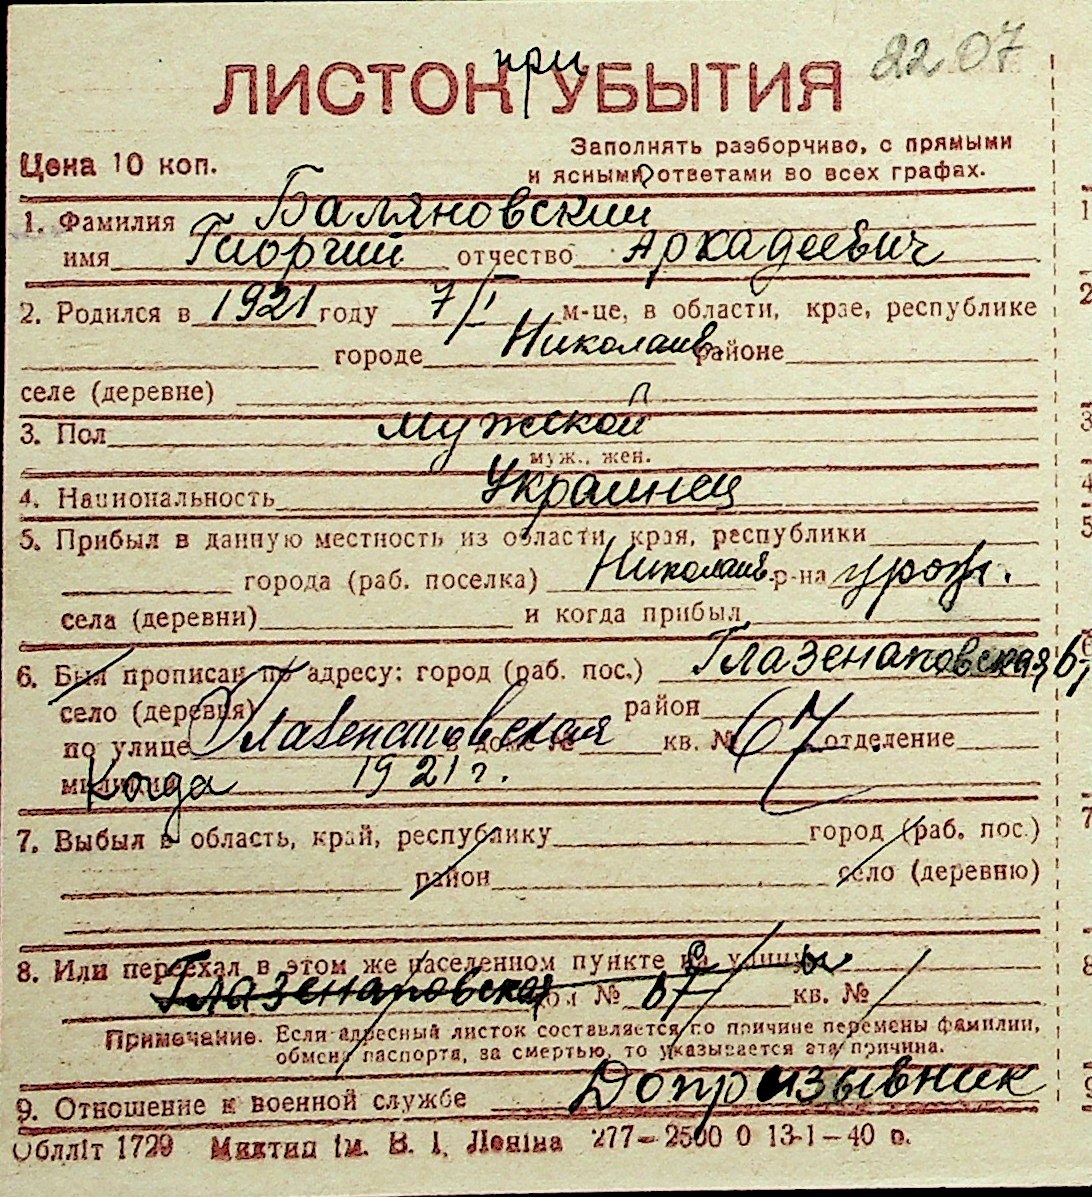 2207
при
ЛИСТОК УБЫТИЯ
Цена 10 коп.
Заполнять разборчиво, с прямыми
и ясными ответами во всех графах.
1. Фамилия Баляновский
имя Георгий отчество Аркадеевич
2. Родился в 1921 году 7/I м-це, в области, крае, республике
городе Николаев районе
селе (деревне)
3. Пол мужской
муж., жен.
4. Национальность Украинец
5. Прибыл в данную местность из области, края, республики
города (раб. поселка) Николаев р-на урож.
села (деревни) и когда прибыл
6. Был прописан по адресу: город (раб. пос.) Глазенаповская, 67
село (деревня) район
по улице Глазенаповская в доме № кв. № 67 отделение
милиции Когда 1921 г.
7. Выбыл в область, край, республику город (раб. пос.)
район село (деревню)
8. Или переехал в этом же населенном пункте на улицу
Глазенаповская дом № 67 кв. №
Примечание. Если адресный листок составляется по причине перемены фамилии,
обмена паспорта, за смертью, то указывается эта причина.
9. Отношение к военной службе Допризывник
Обллiт 1729 Миктип iм. В. I. Ленiна 277—2500 0 13-1—40 р.